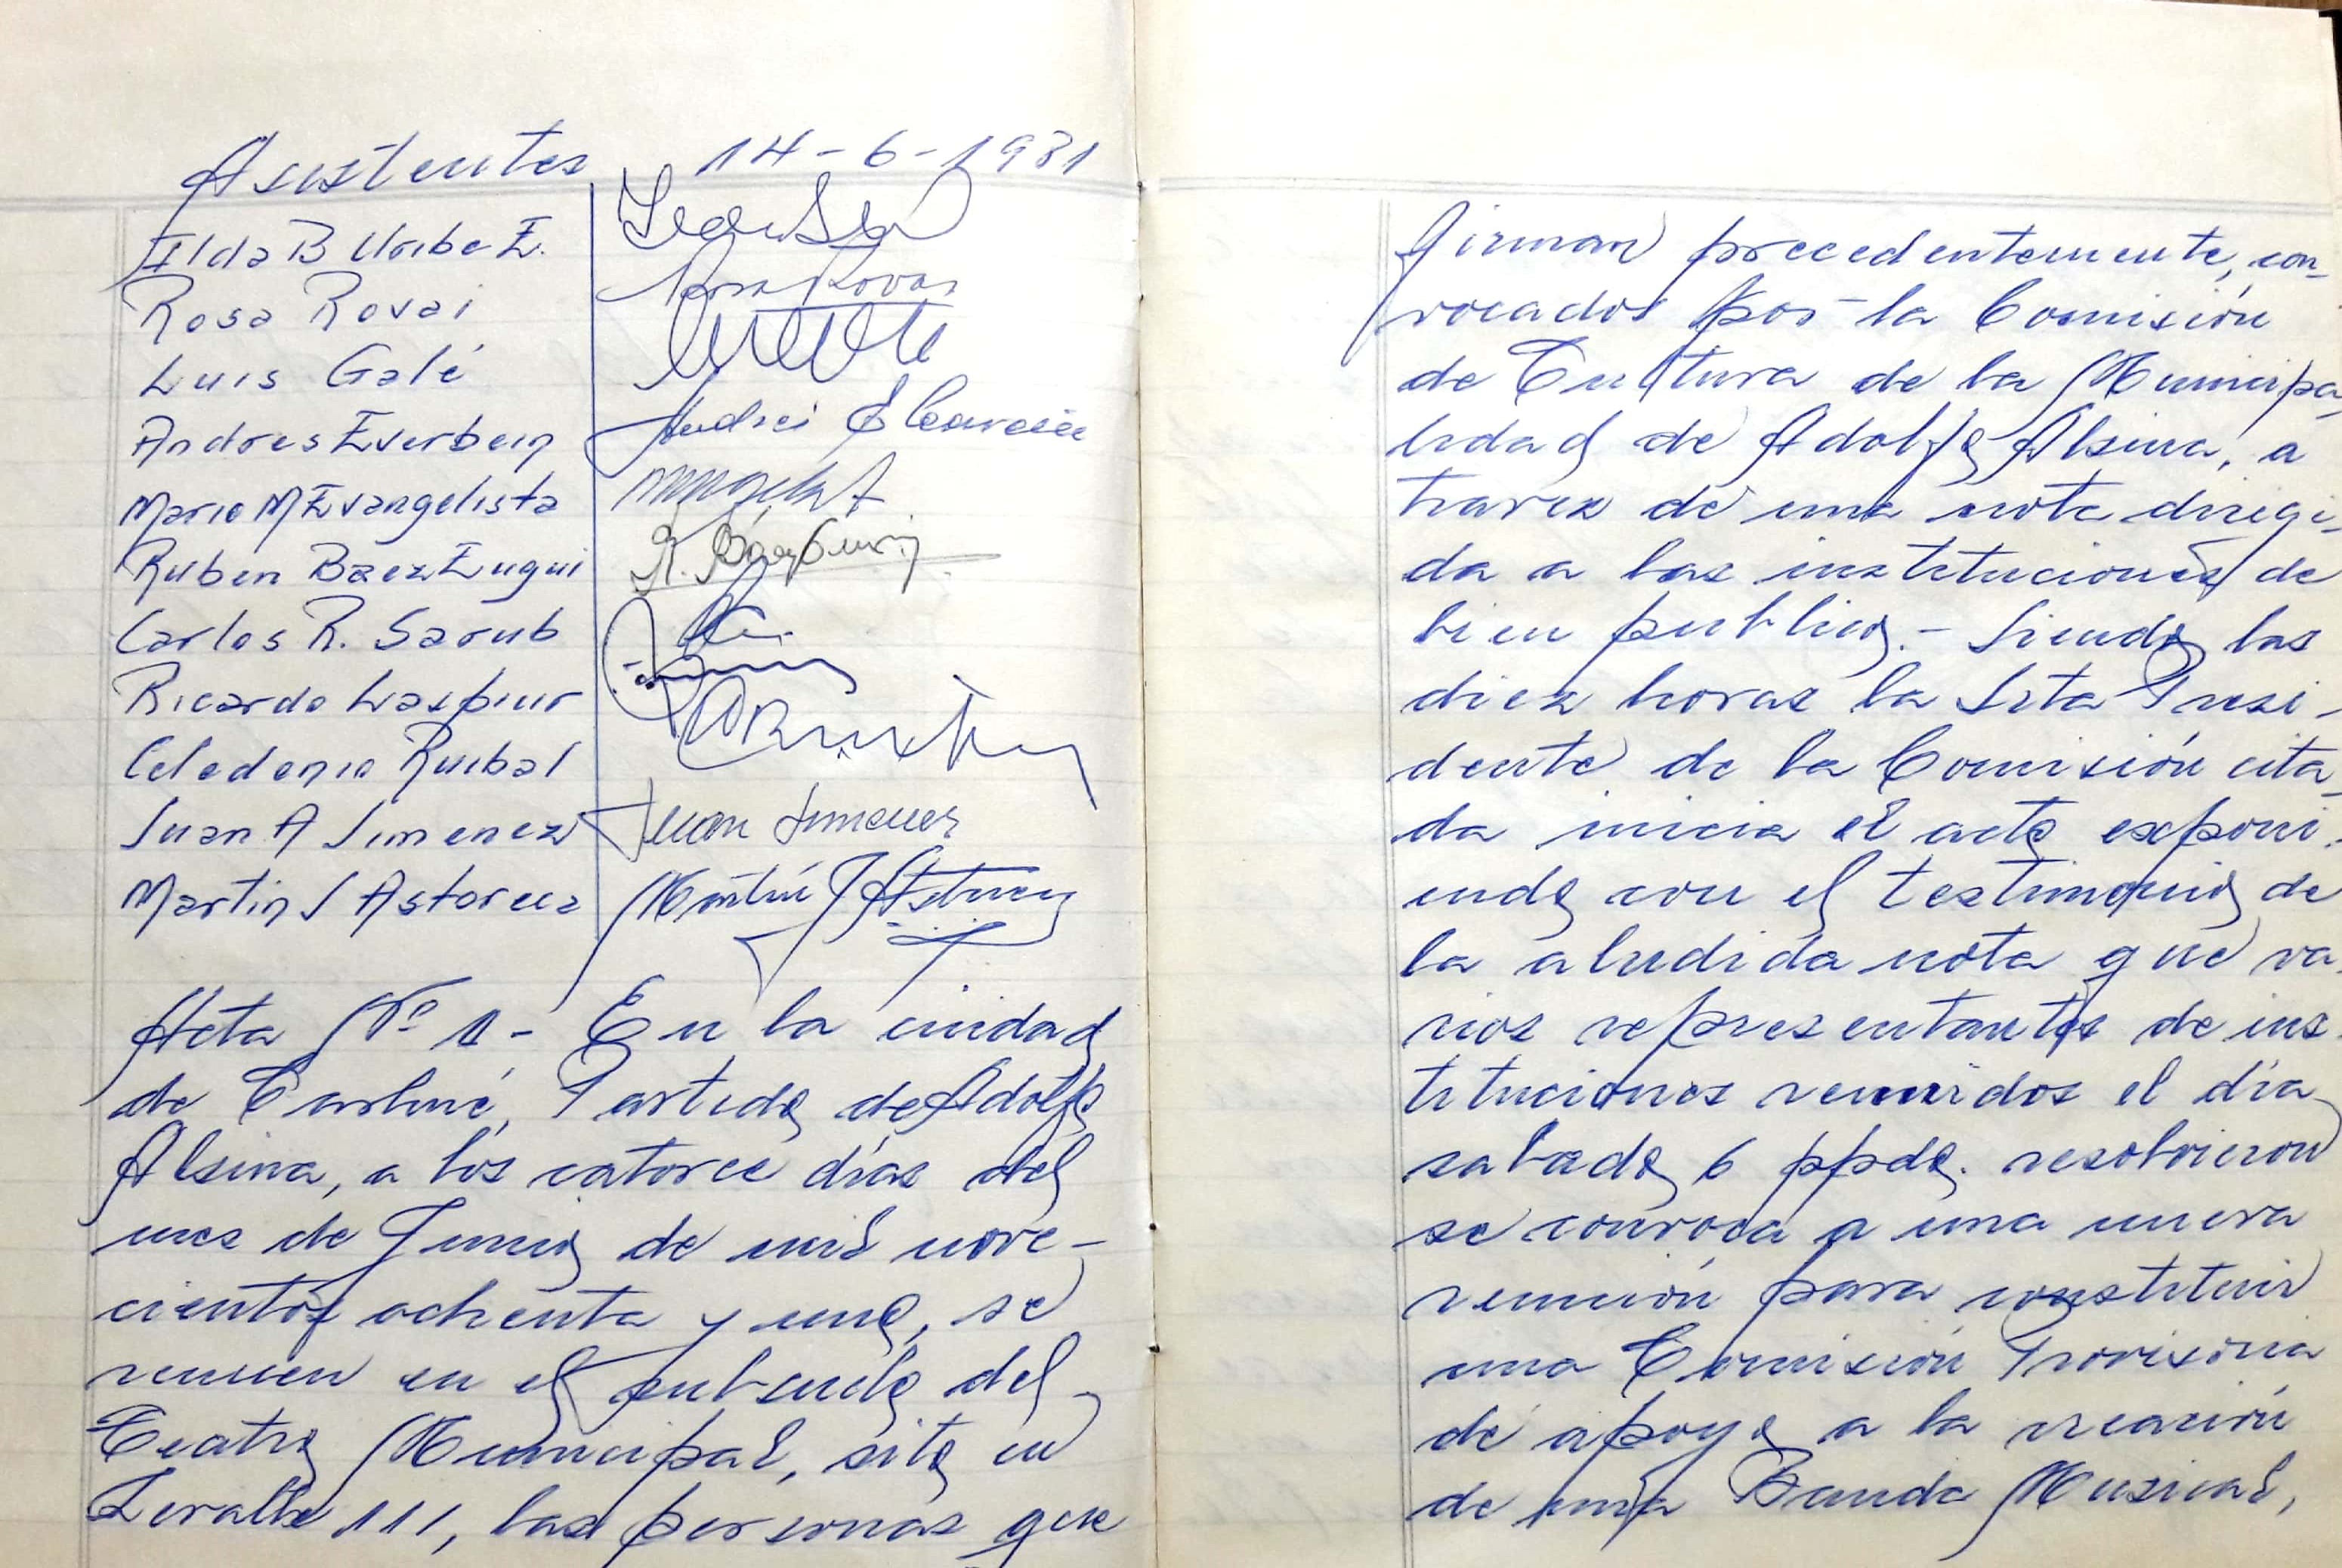 Asistentes 14-6-1981
Ilda B Uribe E.
Rosa Rovai Rosa Rovai
Luis Galé
Andres Everbein Andrés
Mario M Evangelista
Ruben Baez Eugui R. Báez Eugui
Carlos R. Sarub
Ricardo Laspiur
Celedonio Ruibal
Juan A Jimenez Juan Jimenez
Martin J Astorua Martín J
Acta Nº 1 - En la ciudad
de Carhué, Partido de Adolfo
Alsina, a los catorce días del
mes de Junio de mil nove-
cientos ochenta y uno, se
reunen en el subsuelo del
Teatro Municipal, sito en
Levalle 111, las personas que
firman precedentemente, con-
vocados por la Comisión
de Cultura de la Municipa
lidad de Adolfo Alsina, a
travez de una nota dirigi-
da a las instituciones de
bien publico.- Siendo las
diez horas la Srta Presi-
dente de la Comisión cita-
da inicia el acto exponi-
endo con el testimonio de
la aludida nota que va-
rios representantes de ins-
tituciones reunidos el día
sabado 6 ppdo. resolvieron
se convoca a una nueva
reunión para constituir
una Comisión Provisoria
de apoyo a la creación
de una Banda Musical,